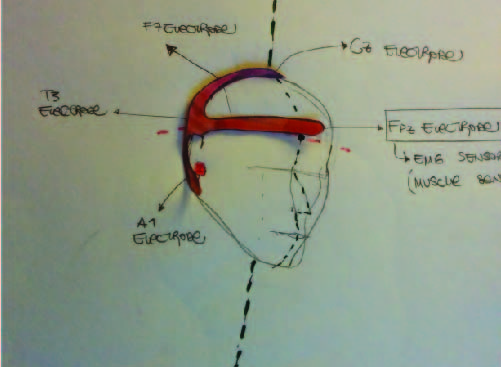 F7 ELECTRODE
CZ ELECTRODE
T3
ELECTRODE
FPZ ELECTRODE
EMG SENSOR
(MUSCLE
A1
ELECTRODE